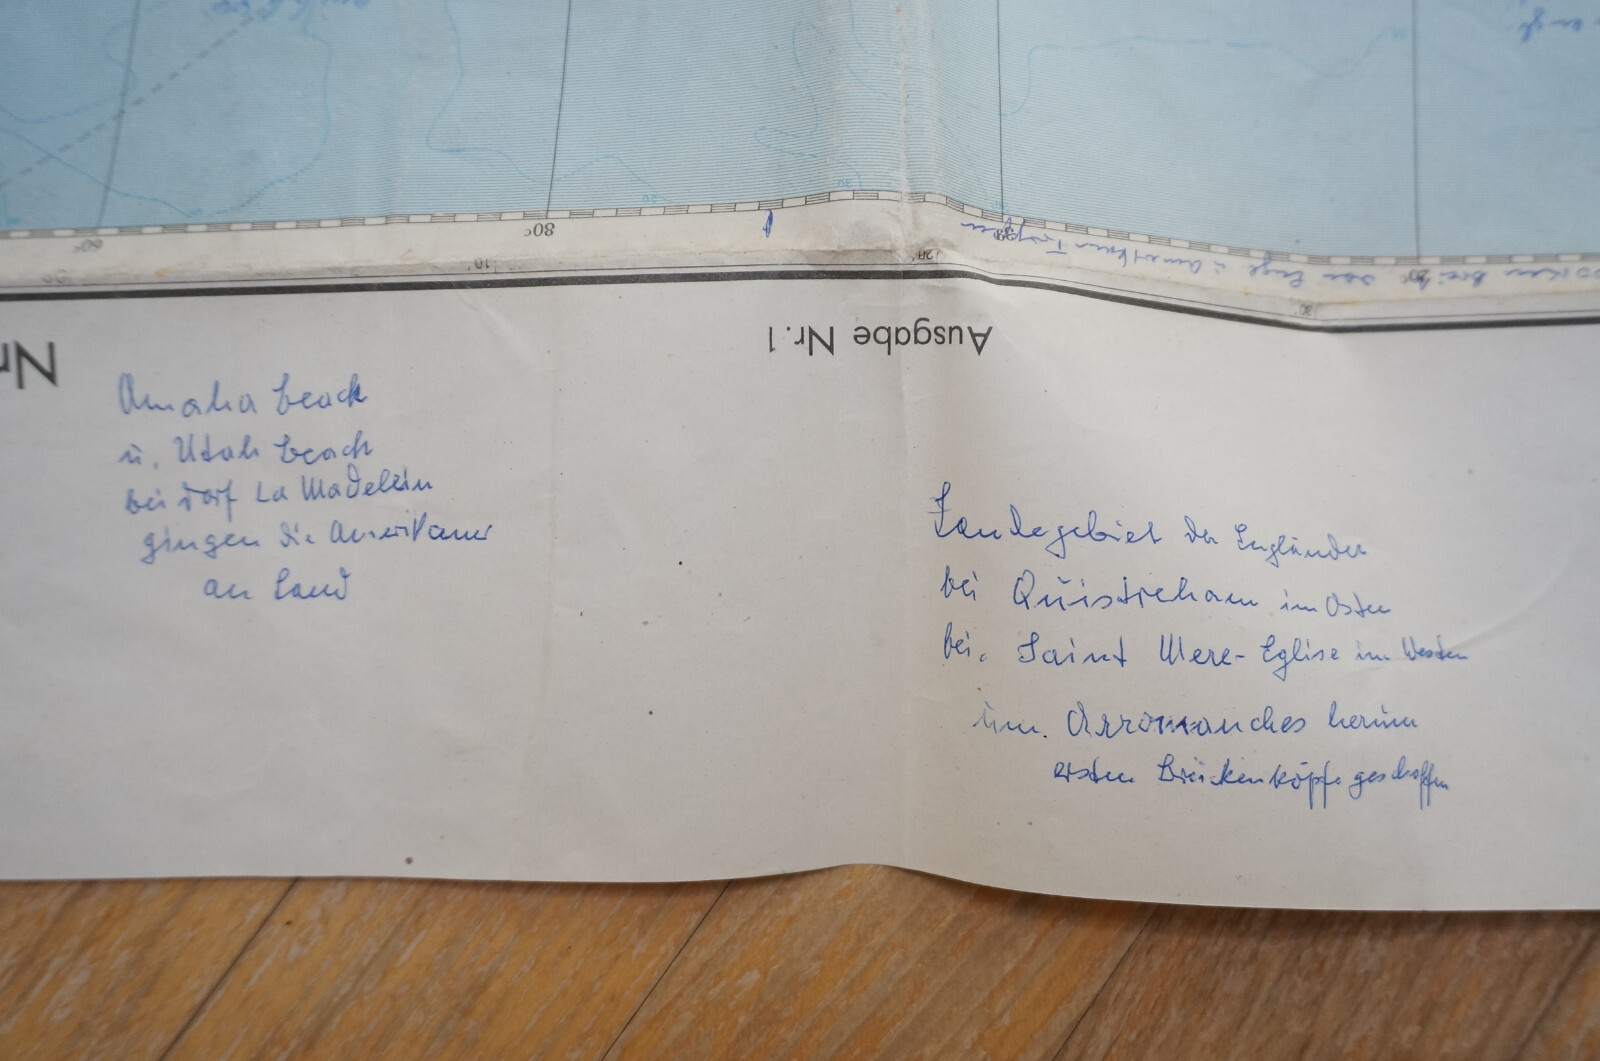 60°
80°
99
20°
10'
20'
30'
engl. u. amerikaner Truppen
Ausgabe Nr. 1
Nr
Omaha beach
u. Utah beach
bei dorf La Madelein
gingen die Amerikaner
an Land
Landegebiet der Engländer
bei Quistreham im Osten
bei. Saint Mere-Eglise im Westen
um. Arromanches herum
ersten Brückenköpfe geschaffen